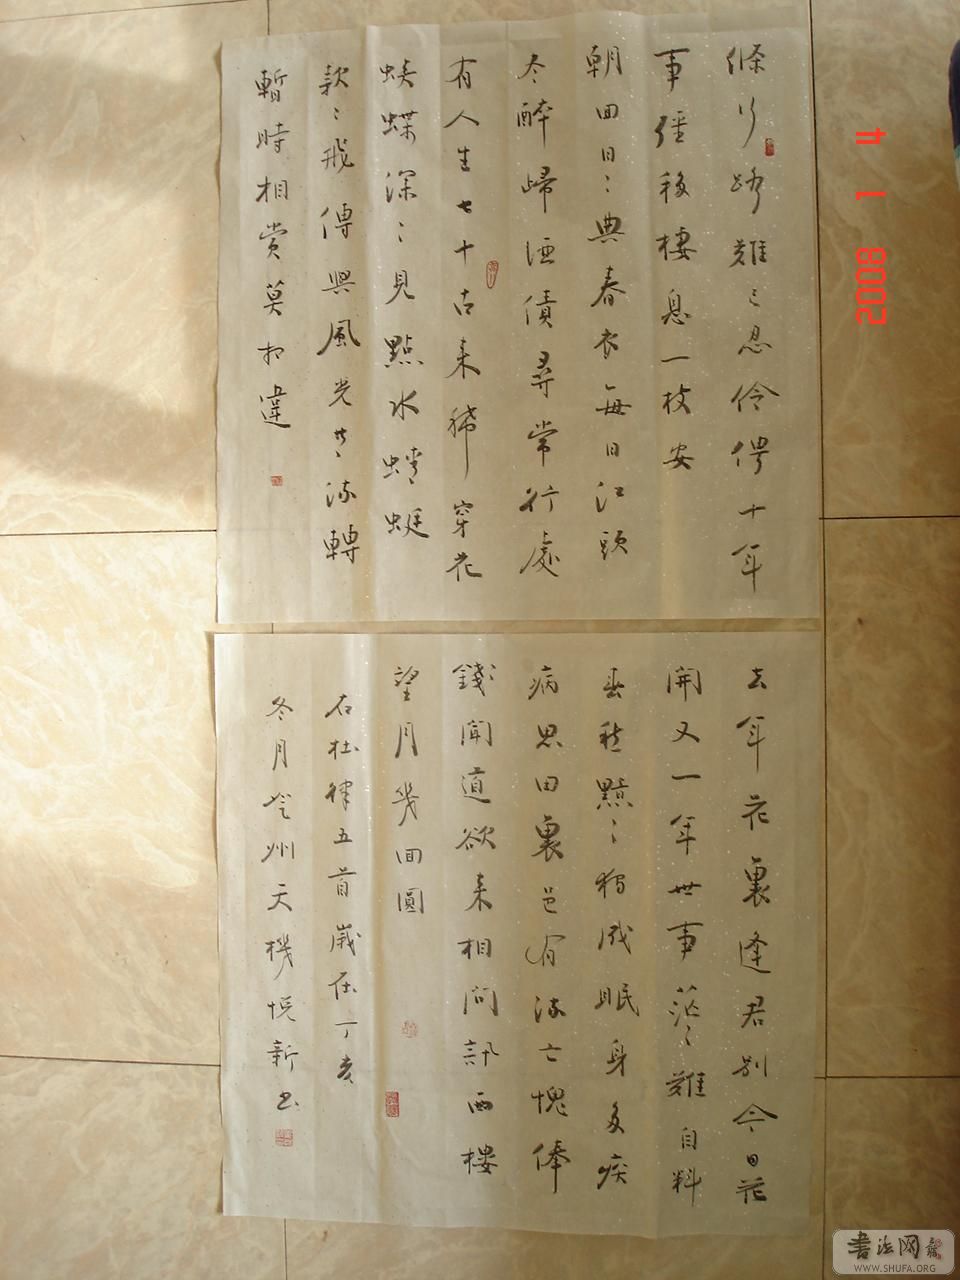 條行路難〻忍伶俜十年
事强移棲息一枝安
朝回日〻典春衣每日江頭
尽醉歸酒債尋常行處
有人生七十古来稀穿花
蛱蝶深〻見點水蜻蜓
款〻飛傳與風光共流轉
暫時相賞莫相違
去年花裏逢君別今日花
開又一年世事茫〻難自料
春愁黯〻獨成眠身多疾
病思田裏邑有流亡愧俸
錢聞道欲来相問訊西樓
望月幾回圓
右杜律五首歲在丁亥
冬月 州天機悦新书
2008 1 4
書法网
WWW.SHUFA.ORG